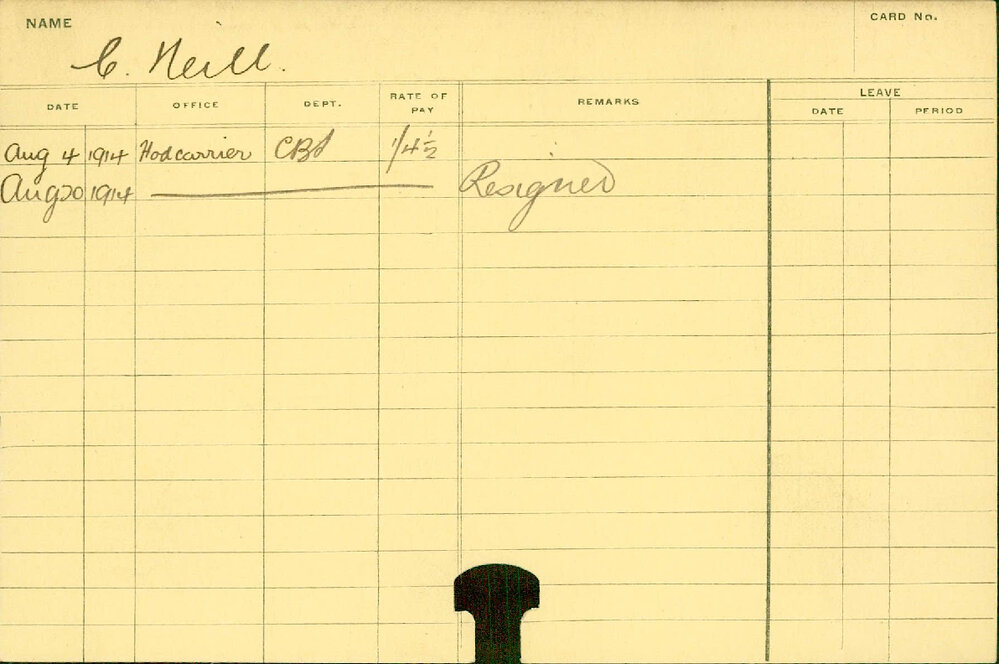 NAME
CARD No.
C. Neill.
DATE OFFICE DEPT. RATE OF PAY REMARKS LEAVE
DATE PERIOD
Aug 4 1914 Hodcarrier CBS 1/4½
Aug 20 1914 Resigned